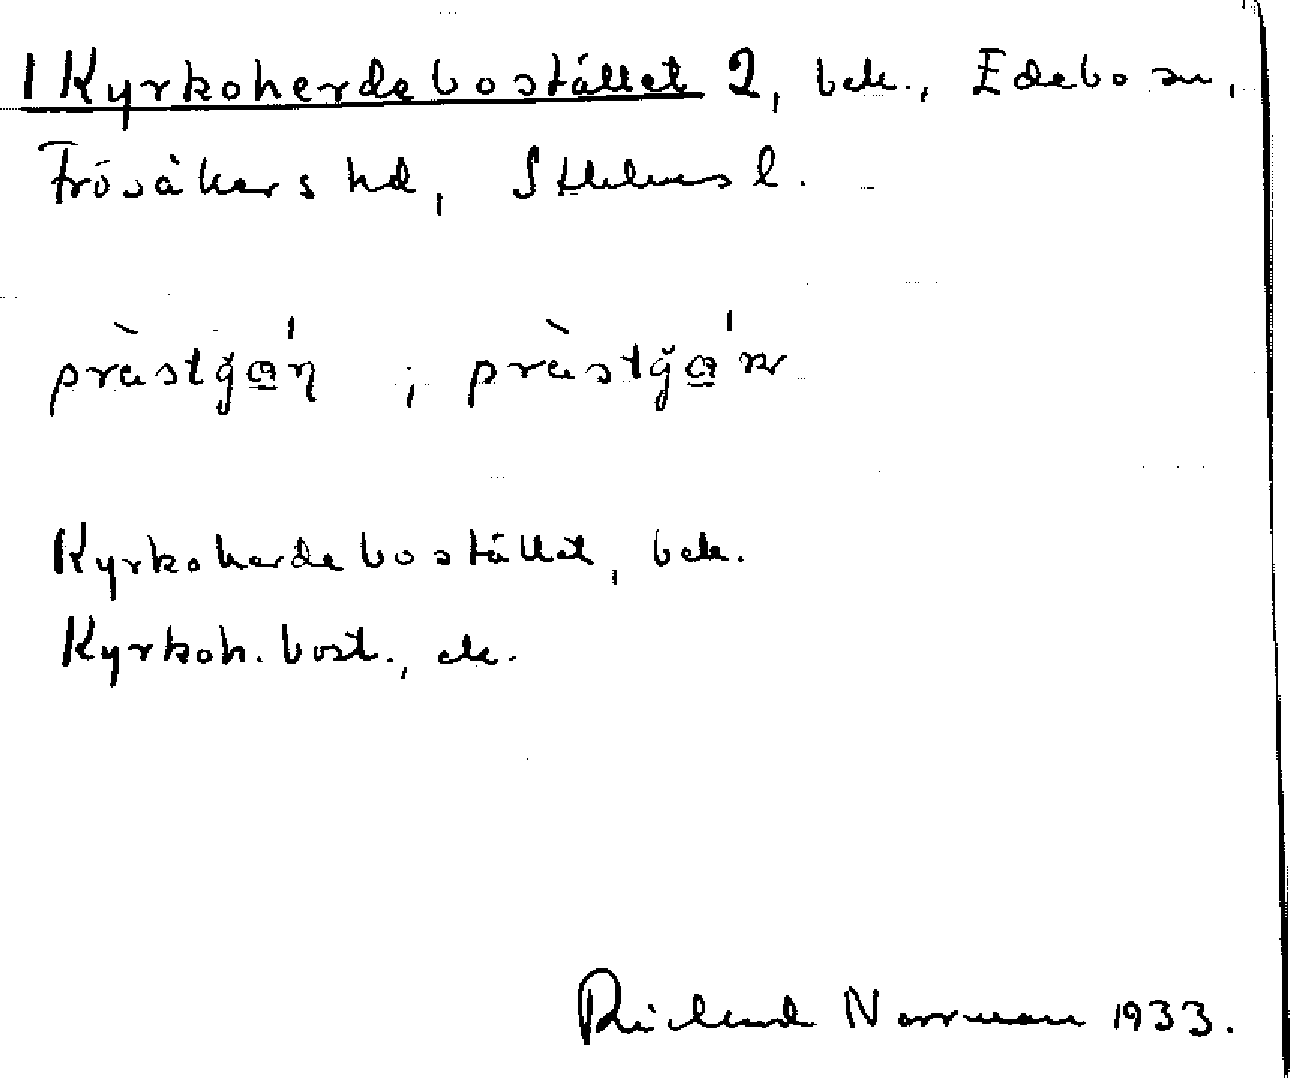 1 Kyrkoherdebostället 2, bek., Edebo sn,
Frösåkers hd, Sthlms l.
prästgɑ́n ; prästgɑ́rn
Kyrkoherdebostället, bek.
Kyrkoh. bost., ek.
Richard Norrman 1933.